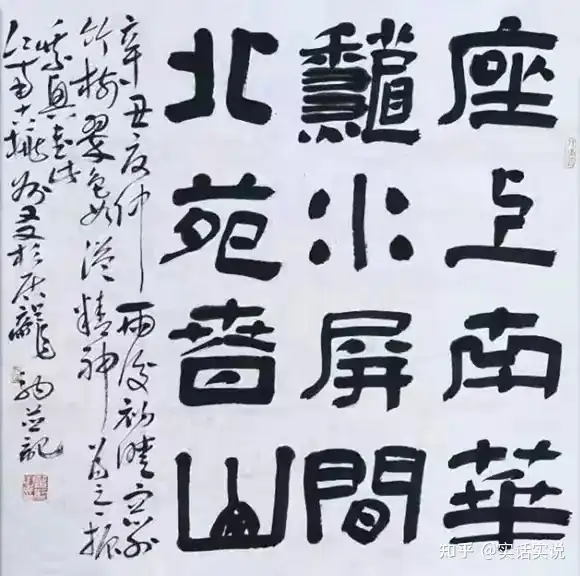 座上南華
龝水屏間
北苑春山
辛丑夏仲雨後初晴窗外
竹樹翠色如滴精神為之振
乘興書此
又於 并記
知乎 @实话实说